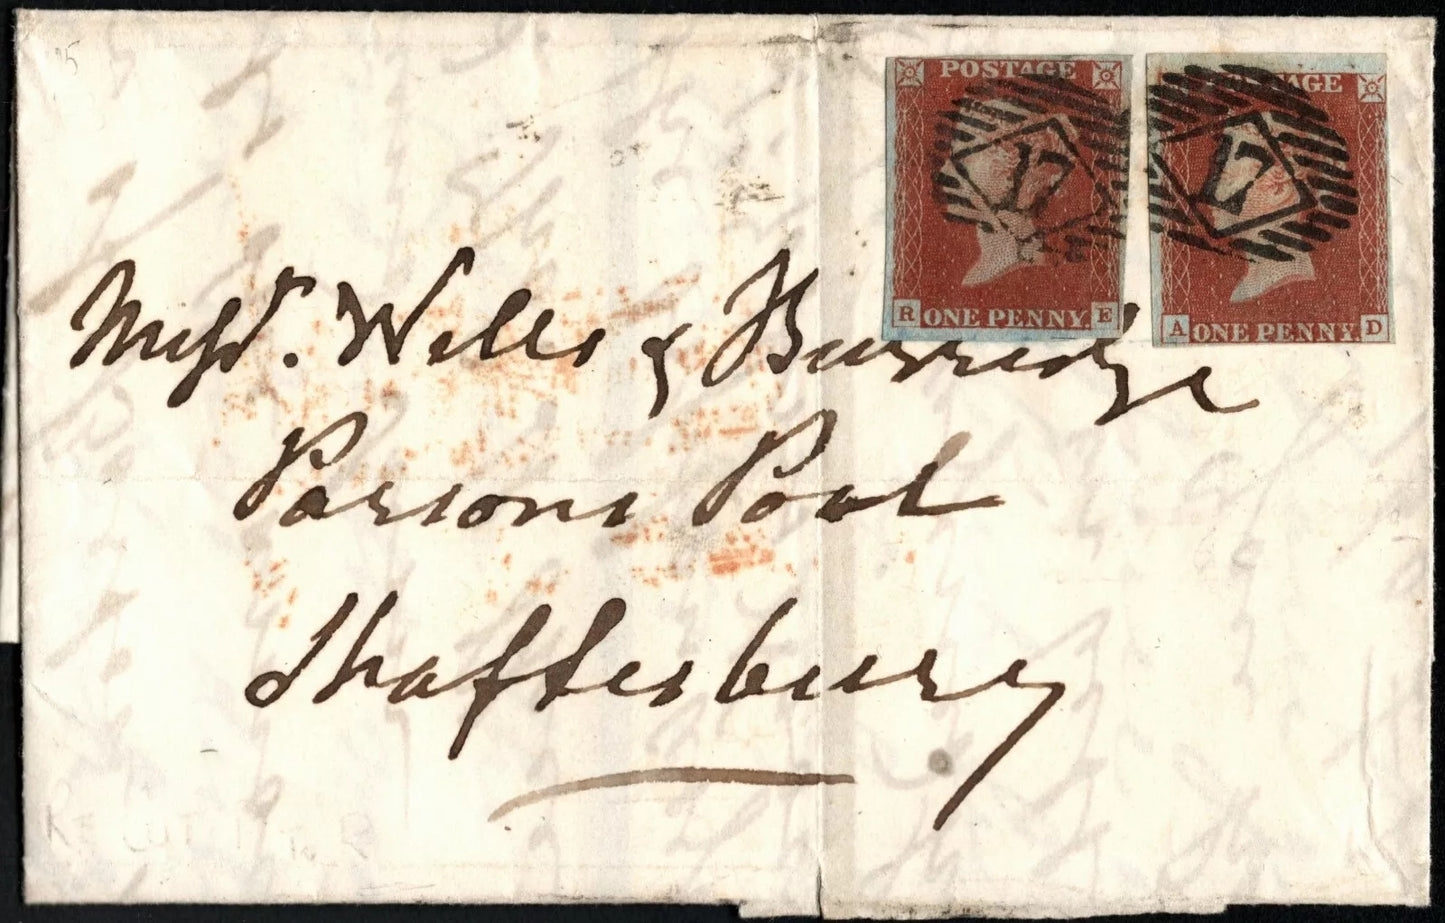 POSTAGE POSTAGE
17 17
R ONE PENNY. E A ONE PENNY. D
Messrs. Wells & Burridge
Parsons Pool
Shaftesbury